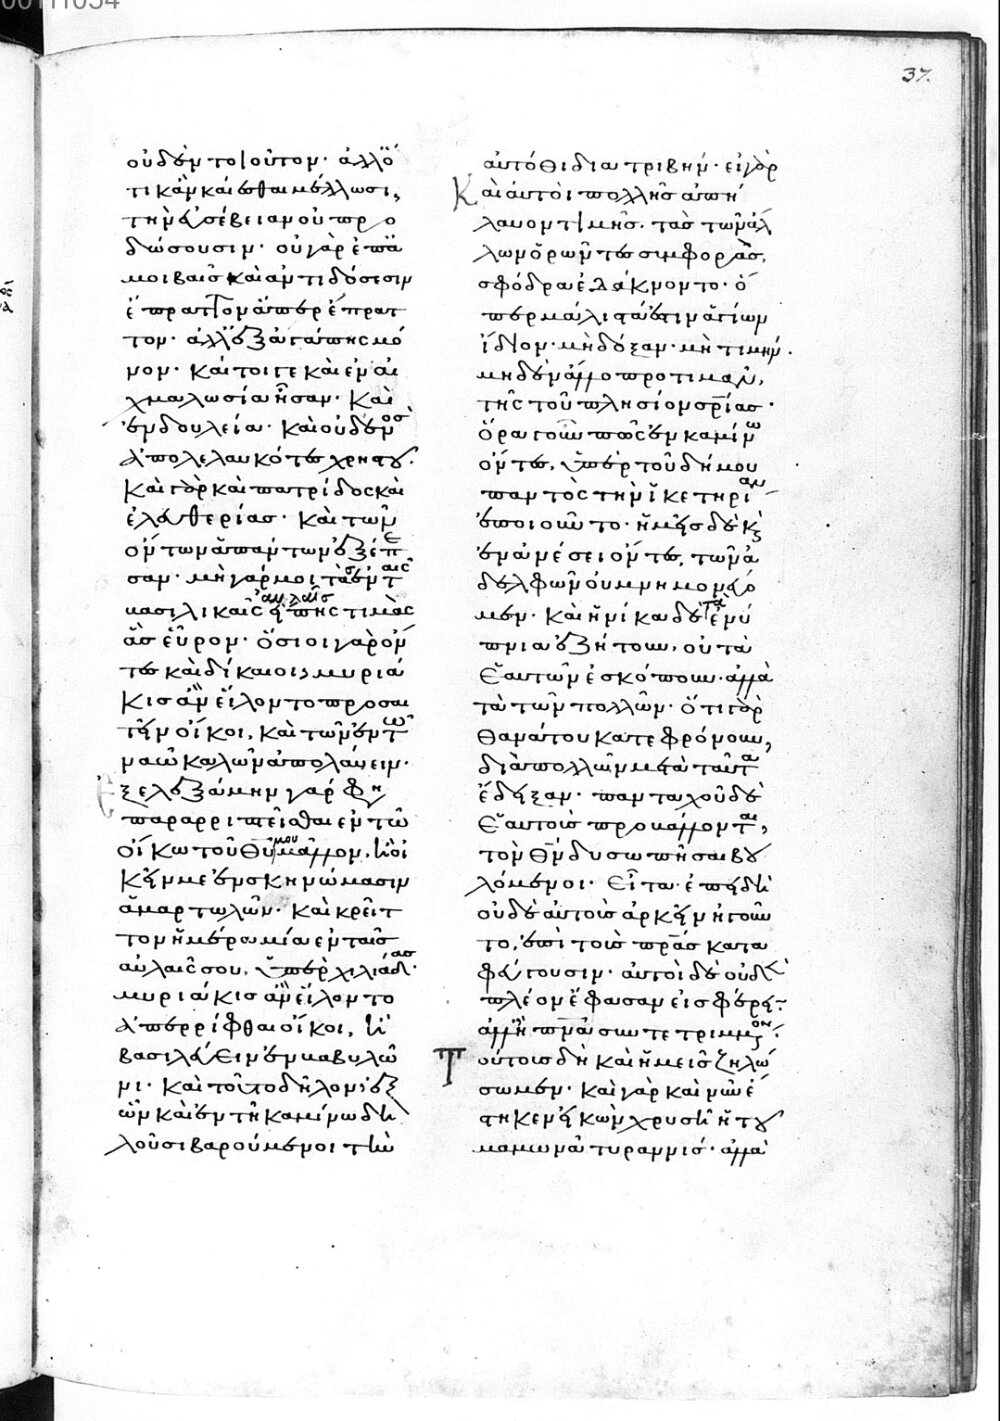 37.
οὐδὲν τοιοῦτον· ἀλλ' ὅ
τι κἂν καίεσθαι μέλλωσι,
τὴν εὐσέβειαν οὐ προ
δώσουσιν· οὐ γὰρ ἐπ' ἀ
μοιβαῖς καὶ ἀντιδόσεσιν
ἔπραττον ἅπερ ἔπρατ
τον· ἀλλ' ἐξ ἀγάπης μό
νον· καίτοιγε καὶ ἐν αἰ
χμαλωσία ἦσαν· καὶ
ἐν δουλεία· καὶ οὐδενὸς
ἀπολελαυκότες χρηστοῦ·
καὶ γὰρ καὶ πατρίδος καὶ
ἐλευθερίας· καὶ τῶν
ὄντων ἁπάντων ἐξέπε
σαν· μὴ γάρ μοι τὰς ἐν ταῖς
αὐλαῖς
βασιλικαῖς εἴπης τιμὰς
ἃς εὗρον· ὅσιοι γὰρ ὄν
τες καὶ δίκαιοι, μυριά
κις ἂν εἵλοντο προσαι
τεῖν οἴκοι, καὶ τῶν ἐν τῶ
ναῶ καλῶν ἀπολαύειν·
ἐξελεξάμην γάρ φη
παραρριπτεῖσθαι ἐν τῶ
οἴκω τοῦ θυ μου μᾶλλον, ἢ οἰ
κεῖν με ἐν σκηνώμασιν
ἁμαρτωλῶν· καὶ κρεῖτ
τον ἡμέρα μία ἐν ταῖς
αὐλαῖς σου, ὑπὲρ χιλιάδας·
μυριάκις ἂν εἵλοντο
ἀπερρίφθαι οἴκοι, ἢ
βασιλεύειν ἐν βαβυλῶ
νι· καὶ τοῦτο δῆλον ἐξ
ὧν καὶ ἐν τῆ καμίνω δη
λοῦσι βαρούμενοι τὴν
αὐτόθι διατριβήν· εἰ γὰρ
καὶ αὐτοὶ πολλῆς ἀπή
λαυον τιμῆς, τὰς τῶν ἄλ
λων ὁρῶντες συμφοράς,
σφόδρα ἐδάκνοντο· ὅ
περ μάλιστά ἐστιν ἁγίων
ἴδιον· μὴ δόξαν· μὴ τιμήν·
μηδὲν ἄλλο προτιμᾶν,
τῆς τοῦ πλησίον σρίας·
ὅρα γοῦν πῶς ἐν καμίνω
ὄντες, ὑπὲρ τοῦ δήμου
παντὸς τὴν ἱκετηρίαν
ἐποιοῦντο· ἡμεῖς δὲ καὶ
ἐν ἀνέσει ὄντες, τῶν ἀ
δελφῶν οὐ μνημονεύο
μεν· καὶ ἡνίκα δὲ τὰ ἐνύ
πνια ἐξήτουν, οὐ τὰ
ἑαυτῶν ἐσκόπουν· ἀλλὰ
τὰ τῶν πολλῶν· ὅτι γὰρ
θανάτου κατεφρόνουν,
διὰ πολλῶν μετὰ ταῦτα
ἔδειξαν· πανταχοῦ δὲ
ἑαυτοὺς προβάλλονται,
τὸν θν δυσωπῆσαι βου
λόμενοι· εἶτα ἐπειδὴ
οὐδὲ αὐτοὺς ἀρκεῖν ἡγοῦν
το, ἐπὶ τοὺς πρας κατα
φεύγουσιν· αὐτοὶ δὲ οὐδὲν
πλέον ἔφασαν εἰσφέρειν·
ἀλλ' ἢ πνα συντετριμμένον·
τούτους δὴ καὶ ἡμεῖς ζηλώ
σωμεν· καὶ γὰρ καὶ νῦν ἕ
στηκεν εἰκὼν χρυσῆ ἡ τοῦ
μαμωνᾶ τυραννίς· ἀλλὰ